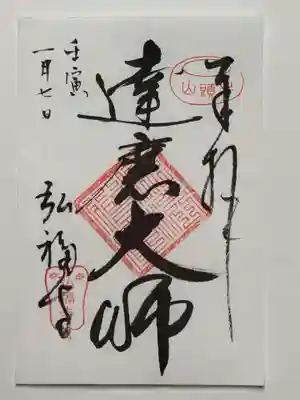 奉拝
牛頭山
達磨大師
壬寅
一月七日
弘福寺